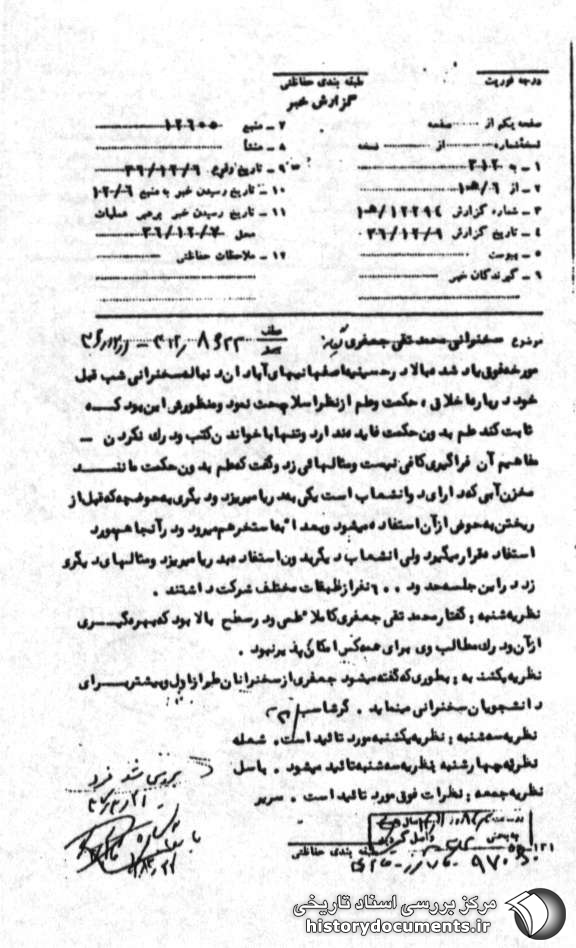 درجه فوریت
طبقه بندی حفاظتی
گزارش خبر
صفحه یکم از صفحه
نسخه شماره از نسخه
۱ ـ به ۳۱۲
۲ ـ از ۱۰ﻫ/۶
۳ ـ شماره گزارش ۱۰ﻫ/۱۲۲۹۴
۴ ـ تاریخ گزارش ۳۶/۱۲/۹
۵ ـ پیوست
۶ ـ گیرندگان خبر
۷ ـ منبع ۱۲۶۰۰
۸ ـ منشأ
۹ ـ تاریخ وقوع ۳۶/۱۲/۶
۱۰ ـ تاریخ رسیدن خبر به منبع ۱۲/۶
۱۱ ـ تاریخ رسیدن خبر برهبر عملیات
محل ۳۶/۱۲/۷
۱۲ ـ ملاحظات حفاظتی
موضوع سخنرانی محمد تقی جعفری
مورخه فوق یاد شده بالا در حسینیه اصفهانیهای آبادان دنباله سخنرانی شب قبل
خود درباره اخلاق ، حکمت و علم از نظر اسلام بحث نمود و منظورش این بود که
ثابت کند علم بدون حکمت فایده ندارد و تنها با خواندن کتب و درک نکردن ـ
مفاهیم آن فراگیری کافی نیست و مثالهائی زد و گفت که علم بدون حکمت مانند
مخزن آبی که دارای دو انشعاب است یکی به دریا میریزد و دیگری به حوضچه که قبل از
ریختن به حوض از آن استفاده میشود و بعدا به استخر هم میرود و در آنجا هم مورد
استفاده قرار میگیرد ولی انشعاب دیگر بدون استفاده به دریا میریزد و مثالهای دیگری
زد در این جلسه حدود ۶۰۰ نفر از طبقات مختلف شرکت داشتند .
نظریه شنبه : گفتار محمد تقی جعفری کاملا علمی و در سطح بالا بود که بهره گیری
از آن و درک مطالب وی برای همه کس امکان پذیر نبود .
نظریه یکشنبه : بطوری که گفته میشود جعفری از سخنرانان طراز اول و بیشتر برای
دانشجویان سخنرانی مینماید . گرشاسب
نظریه سه شنبه : نظریه یکشنبه مورد تائید است . شعله
نظریه چهارشنبه : نظریه سه شنبه تائید میشود . باسل
نظریه جمعه : نظرات فوق مورد تائید است . سریر
بررسی شد
طبقه بندی حفاظتی
مرکز بررسی اسناد تاریخی
historydocuments.ir